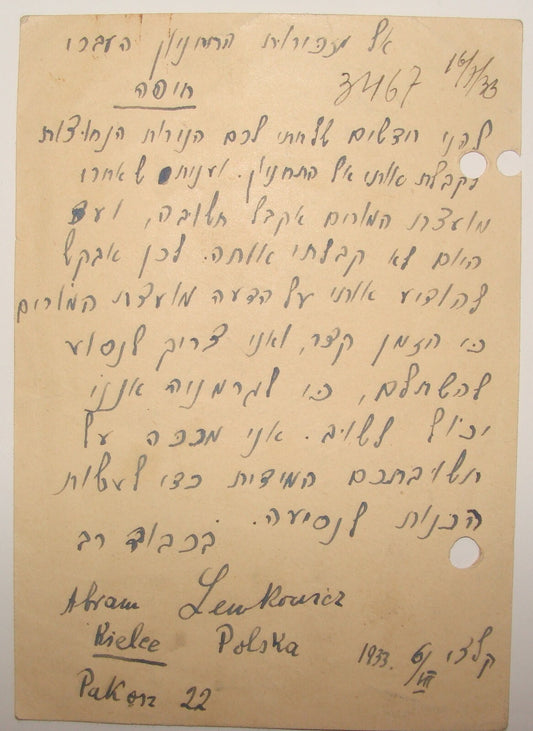 אל מזכירות התחניון העברי
16/7/33
3467
חיפה
לפני חדשים שלחתי לכם תעודות הנחוצות
לקבלת אותי אל התחניון. ועניתם שאחרי
מועצת המורים אקבל תשובה, ועד
היום לא קבלתי אותה. לכן אבקש
להודיע אותי על הדעה מועצת המורים
כי הזמן קצר, ואני צריך לנסוע
להשתלם, כי לגרמניה אינני
יכול לשוב. אני מככה על
תשובתכם המידית כדי לעשות
הכנות לנסיעה.
בכבוד רב
Abram Lewkowicz
Kielce Polska
קלצי 6/VII 1933.
Pakosz 22